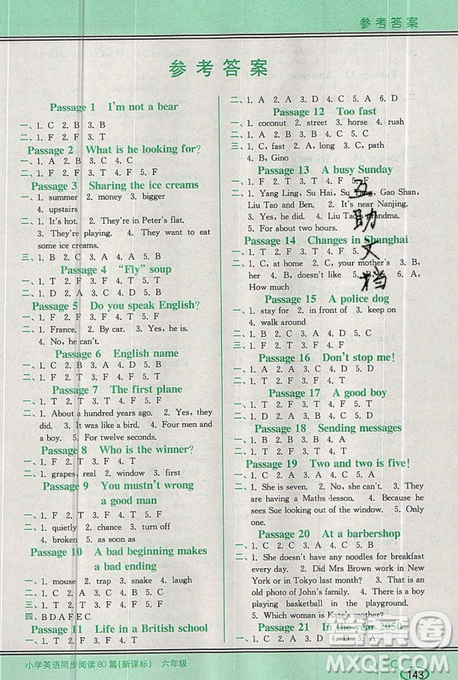 参考答案
参考答案
Passage 1 I'm not a bear
一、1. C 2. B 3. B
二、1. F 2. F 3. T
Passage 2 What is he looking for?
一、1. F 2. T 3. F 4. F 5. F
Passage 3 Sharing the ice creams
一、1. summer 2. money 3. bigger
4. upstairs
二、1. It's hot. 2. They're in Peter's flat.
3. They're playing. 4. They want to eat
some ice creams.
三、1. B 2. C 3. A 4. C 5. B
Passage 4 “Fly” soup
一、1. D 2. A 3. D 4. C
Passage 5 Do you speak English?
一、1. F 2. T 3. F 4. F 5. F
二、1. France. 2. By car. 3. Yes, he is.
4. No, he can't.
Passage 6 English name
一、1. B 2. B 3. A 4. B
二、1. T 2. F 3. F 4. T
Passage 7 The first plane
一、1. T 2. F 3. F 4. T
二、1. About a hundred years ago. 2. Yes, they
did. 3. It was like a bird. 4. Four men and
a boy. 5. No, it didn't.
Passage 8 Who is the winner?
一、1. F 2. T 3. F 4. T
二、1. grapes, real 2. window 3. first
Passage 9 You mustn't wrong
a good man
一、1. C 2. A 3. C 4. D 5. B
二、1. quietly 2. chance 3. turn off
4. broken 5. as soon as
Passage 10 A bad beginning makes
a bad ending
一、1. mouse 2. trap 3. snake 4. laugh
二、1. T 2. F 3. F 4. T
三、1. C 2. A 3. D 4. B 5. E
四、B D A F E C
Passage 11 Life in a British school
一、1. T 2. F 3. T 4. F
二、1. A 2. A 3. D 4. C 5. A 6. D
Passage 12 Too fast
一、1. coconut 2. street 3. horse 4. rush
二、1. F 2. F 3. T 4. F 5. F
三、1. C, at 2. A, car 3. C, face 4. A,
path 5. B, Gino
Passage 13 A busy Sunday
一、1. F 2. T 3. T 4. F 5. F
二、1. Yang Ling, Su Hai, Su Yang, Gao Shan,
Liu Tao and Ben. 2. It's near Nanjing.
3. Yes, he did. 4. Liu Tao's grandma.
5. For about two hours.
Passage 14 Changes in Shanghai
一、1. F 2. T 3. T 4. F
二、1. C, at home 2. C, your mother's
3. B, her 4. B, doesn't like 5. A,
How much
Passage 15 A police dog
一、1. stay for 2. in front of 3. keep on
4. walk around
二、1. F 2. F 3. F 4. F
Passage 16 Don't stop me!
一、1. T 2. T 3. F 4. F
二、1. T 2. F 3. T 4. F
Passage 17 A good boy
一、1. B 2. D 3. C 4. B 5. D
Passage 18 Sending messages
一、1. B 2. D 3. B 4. A
二、1. T 2. T 3. F 4. T
Passage 19 Two and two is five!
一、1. C 2. C 3. A 4. C 5. B
二、1. She is seven. 2. No, she can't. 3. They
are having a Maths lesson. 4. Because she
loves Sue very much. 5. Maybe she will
see Sue isn't clever.
Passage 20 At a barbershop
一、1. C 2. D 3. A 4. D 5. B
二、1. She doesn't have any noodles for breakfast
every day. 2. Did Mrs Brown work in
New York or in Tokyo last month? 3. That
is an old photo of John's family. 4. There is
a boy playing basketball in the playground.
5. Which woman is Kate's mother?
Passage 21 In the year 2050
一、1. F 2. T 3. F 4. T
互助文档
小学英语同步阅读80篇(新课标) 六年级
143
答案圈
MXQE.COM